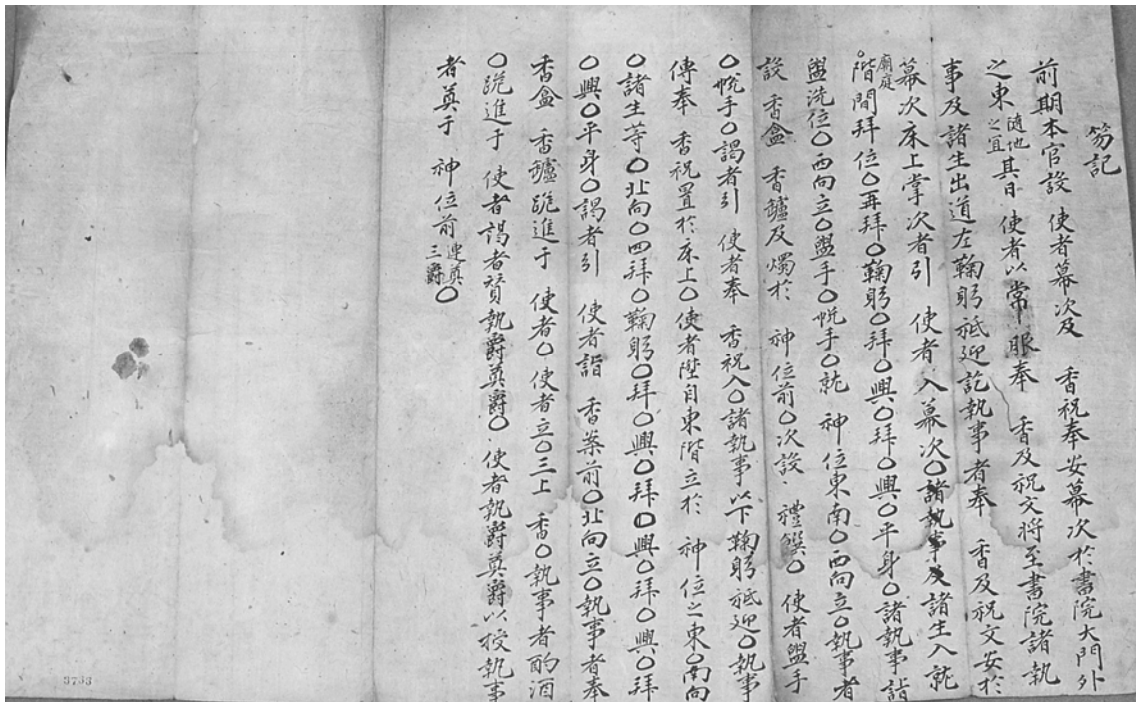 笏記
前期本官設 使者幕次及 香祝奉安幕次於書院大門外
之東隨地之宜其日 使者以常服奉 香及祝文將至書院諸執
事及諸生出道左鞠躬祗迎訖執事者奉 香及祝文安於
幕次床上掌次者引 使者入幕次○諸執事及諸生入就
廟庭階間拜位○再拜○鞠躬○拜○興○拜○興○平身○諸執事詣
盥洗位○西向立○盥手○帨手○就 神位東南○西向立○執事者
設 香盒 香鑪及燭於 神位前○次設 禮饌○ 使者盥手
○帨手○謁者引 使者奉 香祝入○諸執事以下鞠躬祗迎○執事
傳奉 香祝置於床上○使者陞自東階立於 神位之東○南向
○諸生等○北向○四拜○鞠躬○拜○興○拜○興○拜○興○拜
○興○平身○謁者引 使者詣 香案前○北向立○執事者奉
香盒 香鑪跪進于 使者○使者立○三上 香○執事者酌酒
○跪進于 使者謁者贊執爵奠爵○ 使者執爵奠爵以授執事
者奠于 神位前連奠三爵○
3753